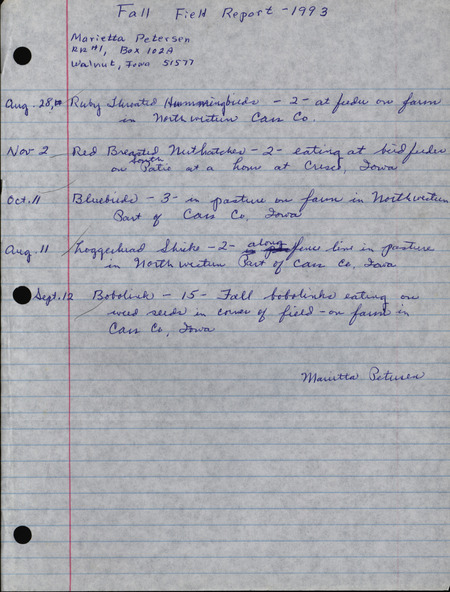 Fall Field Report - 1993
Marietta Petersen
RR #1, Box 102A
Walnut, Iowa 51577
Aug. 28, Ruby Throated Hummingbirds - 2 - at feeder on farm
in Northwestern Cass Co.
Nov 2 Red Breasted Nuthatches - 2 - eating at bird feeder
on South Patio at a home at Cresco, Iowa
Oct. 11 Bluebirds - 3 - in pasture on farm in Northwestern
Part of Cass Co, Iowa
Aug. 11 Loggerhead Shike - 2 - along fence line in pasture
in Northwestern Part of Cass Co, Iowa
Sept. 12 Bobolink - 15 - Fall bobolinks eating on
weed seeds in corner of field - on farm in
Cass Co, Iowa
Marietta Petersen